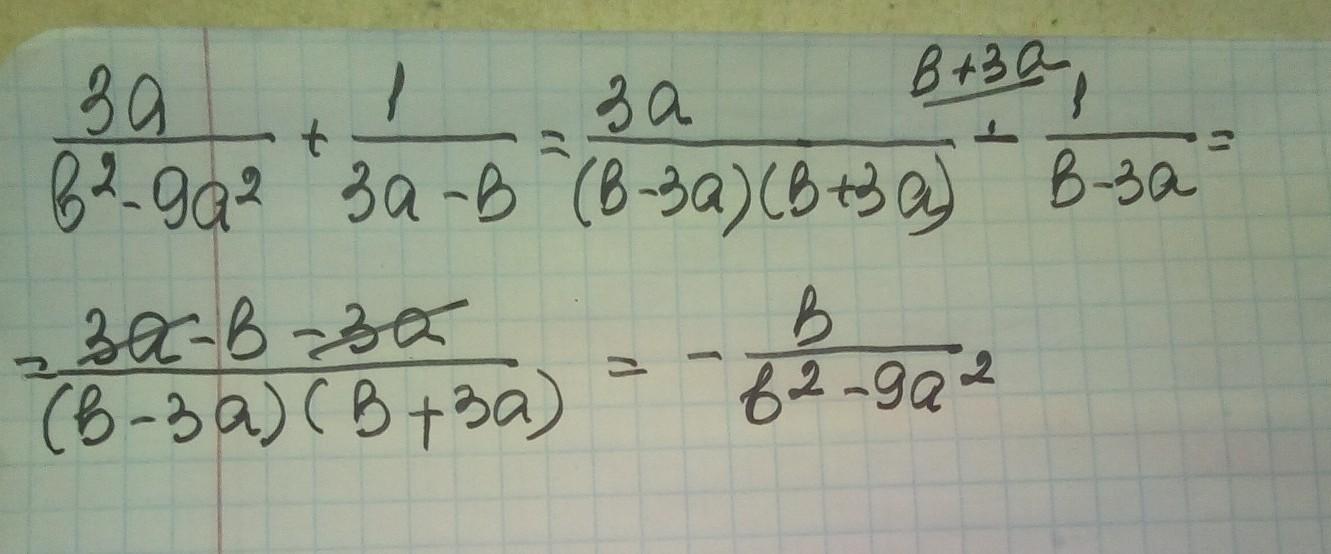 3a/(в²-9a²) + 1/(3a-в) = 3a/((в-3a)(в+3a)) - 1/(в-3a) (в+3a =
= (3a-в-3a)/((в-3a)(в+3a)) = - в/(в²-9a²)